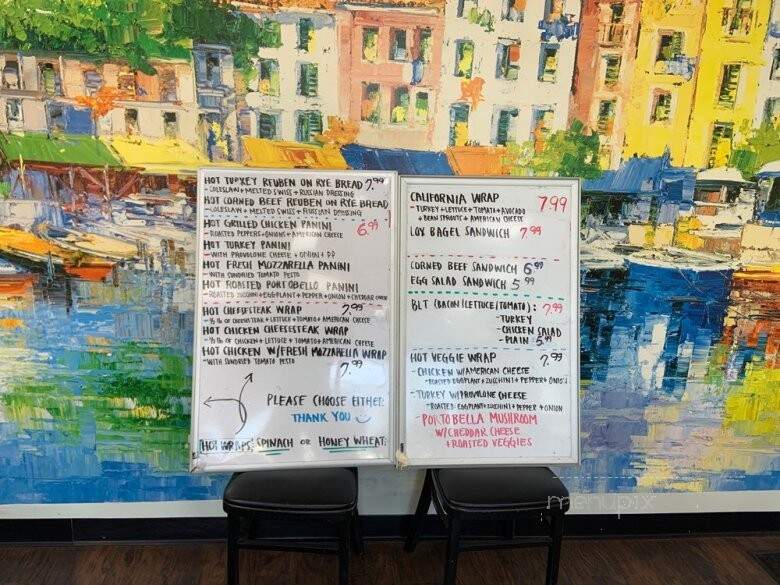 HOT TURKEY REUBEN ON RYE BREAD 7.99
- COLESLAW + MELTED SWISS + RUSSIAN DRESSING
HOT CORNED BEEF REUBEN ON RYE BREAD
- COLESLAW + MELTED SWISS + RUSSIAN DRESSING
HOT GRILLED CHICKEN PANINI 6.99
- ROASTED PEPPERS + ONIONS + AMERICAN CHEESE
HOT TURKEY PANINI
- WITH PROVOLONE CHEESE + ONION +
HOT FRESH MOZZARELLA PANINI
- WITH SUNDRIED TOMATO PESTO
HOT ROASTED PORTOBELLO PANINI
- ROASTED ZUCCHINI + EGGPLANT + PEPPER + ONION + CHEDDAR CHEESE
HOT CHEESESTEAK WRAP 7.99
- 1/2 lb OF CHEESESTEAK + LETTUCE + TOMATO + AMERICAN CHEESE
HOT CHICKEN CHEESESTEAK WRAP
- 1/2 lb OF CHICKEN + LETTUCE + TOMATO + AMERICAN CHEESE
HOT CHICKEN W/FRESH MOZZARELLA WRAP
- WITH SUNDRIED TOMATO PESTO 7.99
PLEASE CHOOSE EITHER:
THANK YOU
HOT WRAPS: SPINACH OR HONEY WHEAT
CALIFORNIA WRAP 7.99
- TURKEY + LETTUCE + TOMATO + AVOCADO
+ BEAN SPROUTS + AMERICAN CHEESE
LOX BAGEL SANDWICH 7.99
CORNED BEEF SANDWICH 6.99
EGG SALAD SANDWICH 5.99
BLT (BACON/LETTUCE/TOMATO): 7.99
- TURKEY
- CHICKEN SALAD
- PLAIN - 5.99
HOT VEGGIE WRAP 7.99
- CHICKEN W/AMERICAN CHEESE
- ROASTED EGGPLANT + ZUCCHINI + PEPPER + ONION
- TURKEY W/PROVOLONE CHEESE
- ROASTED EGGPLANT + ZUCCHINI + PEPPER + ONION
- PORTOBELLA MUSHROOM
W/CHEDDAR CHEESE
+ ROASTED VEGGIES
menupix